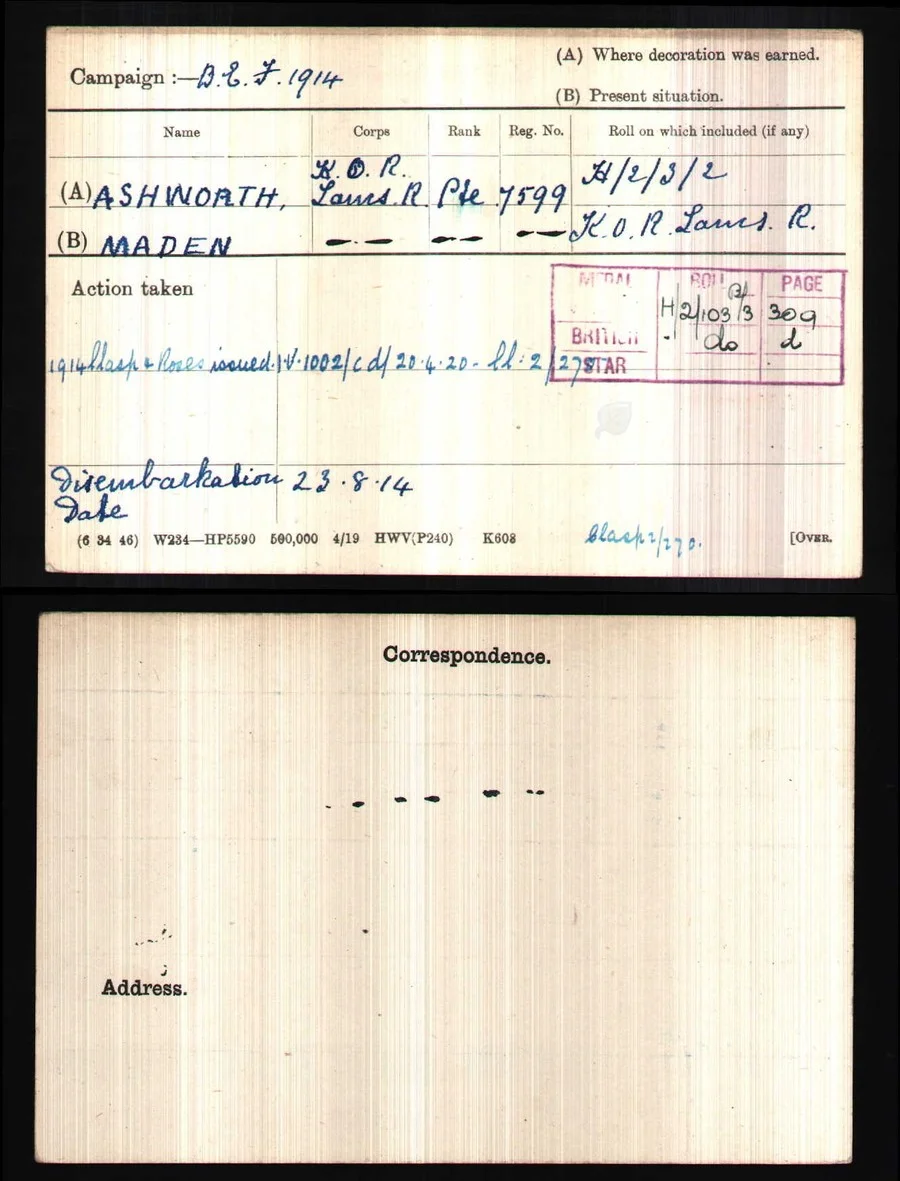 Campaign :— B.E.F. 1914
(A) Where decoration was earned.
(B) Present situation.
Name Corps Rank Reg. No. Roll on which included (if any)
(A) ASHWORTH, K.O.R. Lancs. R. Pte 7599 H/2/3/2
(B) MADEN K.O.R. Lancs. R.
Action taken
MEDAL ROLL PAGE
H 2/103 B/3 309
BRITISH do d
STAR
1914 Clasp & Roses issued. IV. 1002/cd/ 20.4.20 - Cl: 2/270
Disembarkation 23.8.14
Date
Clasp 2/270.
(6 34 46) W234—HP5590 500,000 4/19 HWV(P240) K608 [OVER.
Correspondence.
Address.